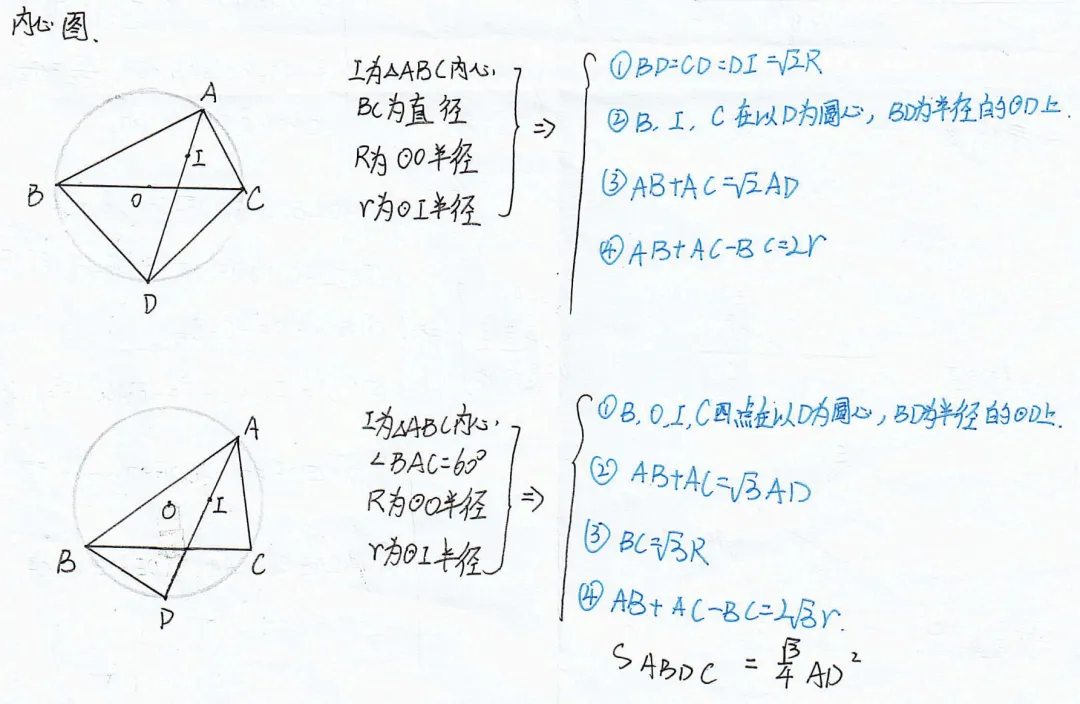 内心图.
A
I
B
O
C
D
I为△ABC内心,
BC为直径
R为⊙O半径
r为⊙I半径
⇒
①BD=CD=DI=√2R
②B, I, C 在以D为圆心, BD为半径的⊙D上.
③AB+AC=√2AD
④AB+AC-BC=2r
A
O
I
B
C
D
I为△ABC内心,
∠BAC=60°
R为⊙O半径
r为⊙I半径
⇒
①B,O,I,C四点在以D为圆心,BD为半径的⊙D上.
② AB+AC=√3AD
③ BC=√3R
④ AB+AC-BC=2√3r.
S ABDC = √3/4 AD²